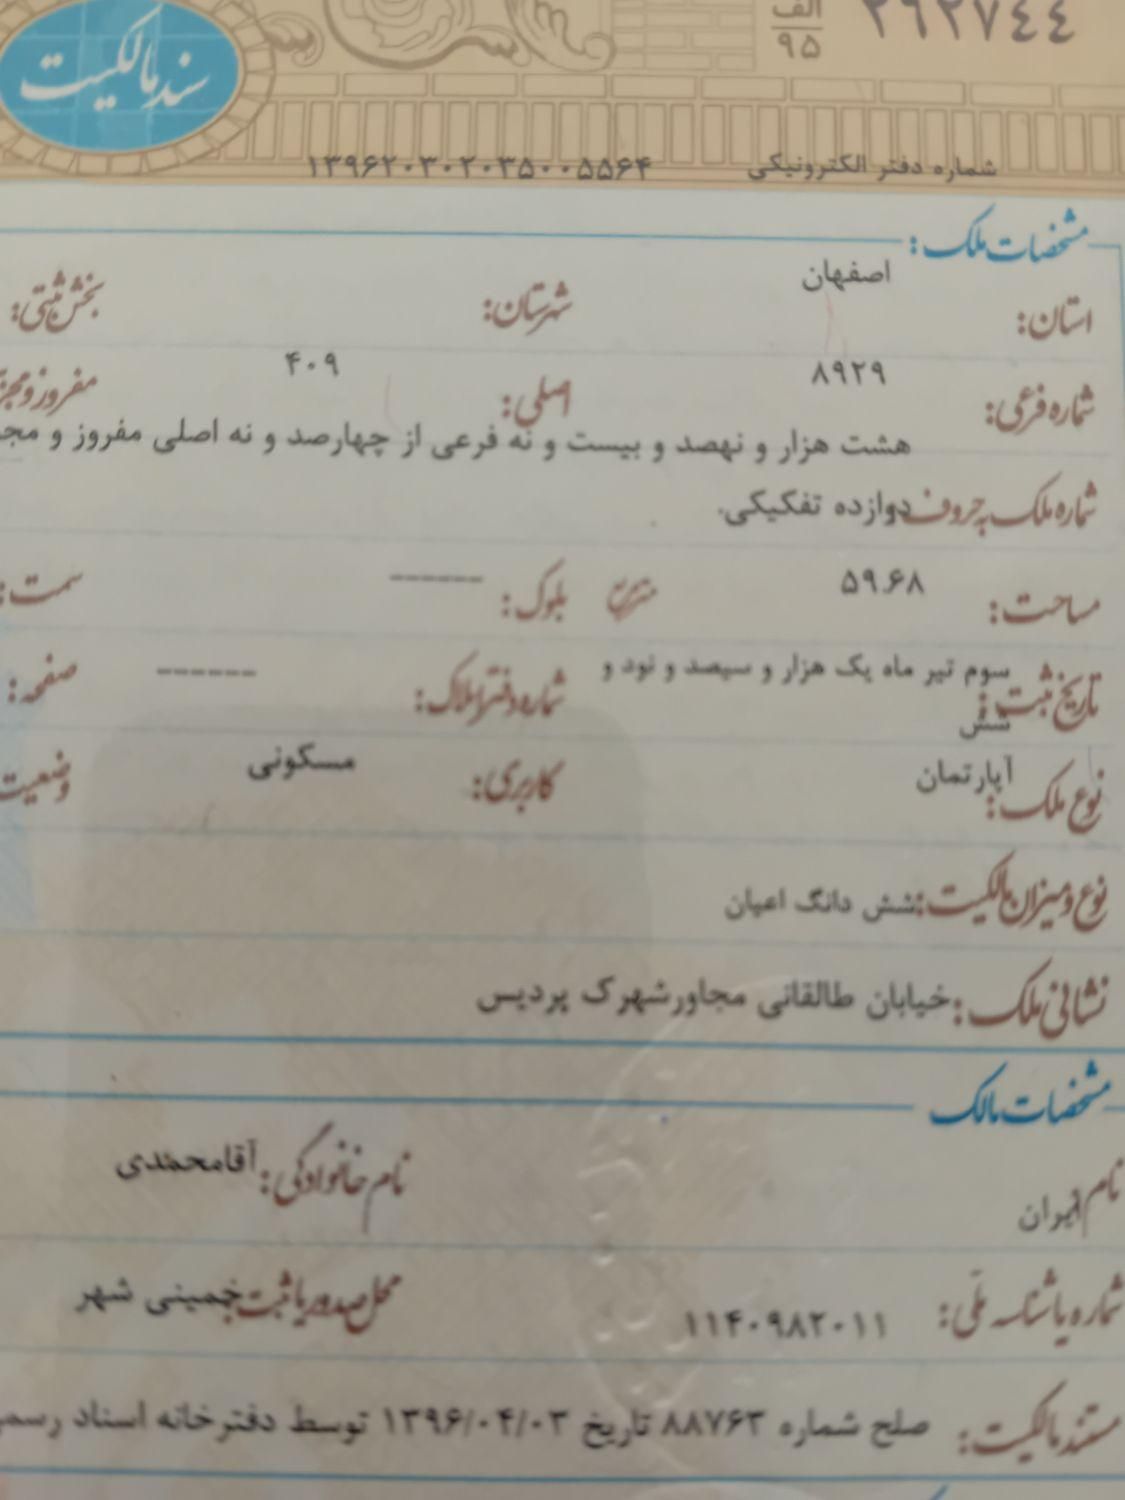 سند مالکیت
الف
۹۵
شماره دفتر الکترونیکی ۱۳۹۶۲۰۳۰۲۰۳۵۰۰۵۵۶۴
مشخصات ملک:
استان: اصفهان شهرستان: بخش ثبتی:
شماره فرعی: ۸۹۲۹ اصلی: ۴۰۹ مفروز و
هشت هزار و نهصد و بیست و نه فرعی از چهارصد و نه اصلی مفروز و
شماره ملک به حروف: دوازده تفکیکی.
مساحت: ۵۹.۶۸ متر مربع بلوک: ------ سمت:
تاریخ ثبت: سوم تیر ماه یک هزار و سیصد و نود و شماره دفتر املاک: ------ صفحه:
شش
نوع ملک: آپارتمان کاربری: مسکونی وضعیت
نوع و میزان مالکیت: شش دانگ اعیان
نشانی ملک: خیابان طالقانی مجاورشهرک پردیس
مشخصات مالک
نام ایران نام خانوادگی: آقامحمدی
شماره یا شناسه ملی: ۱۱۴۰۹۸۲۰۱۱ محل صدور یا ثبت: خمینی شهر
مستند مالکیت: صلح شماره ۸۸۷۶۳ تاریخ ۱۳۹۶/۰۴/۰۳ توسط دفترخانه اسناد